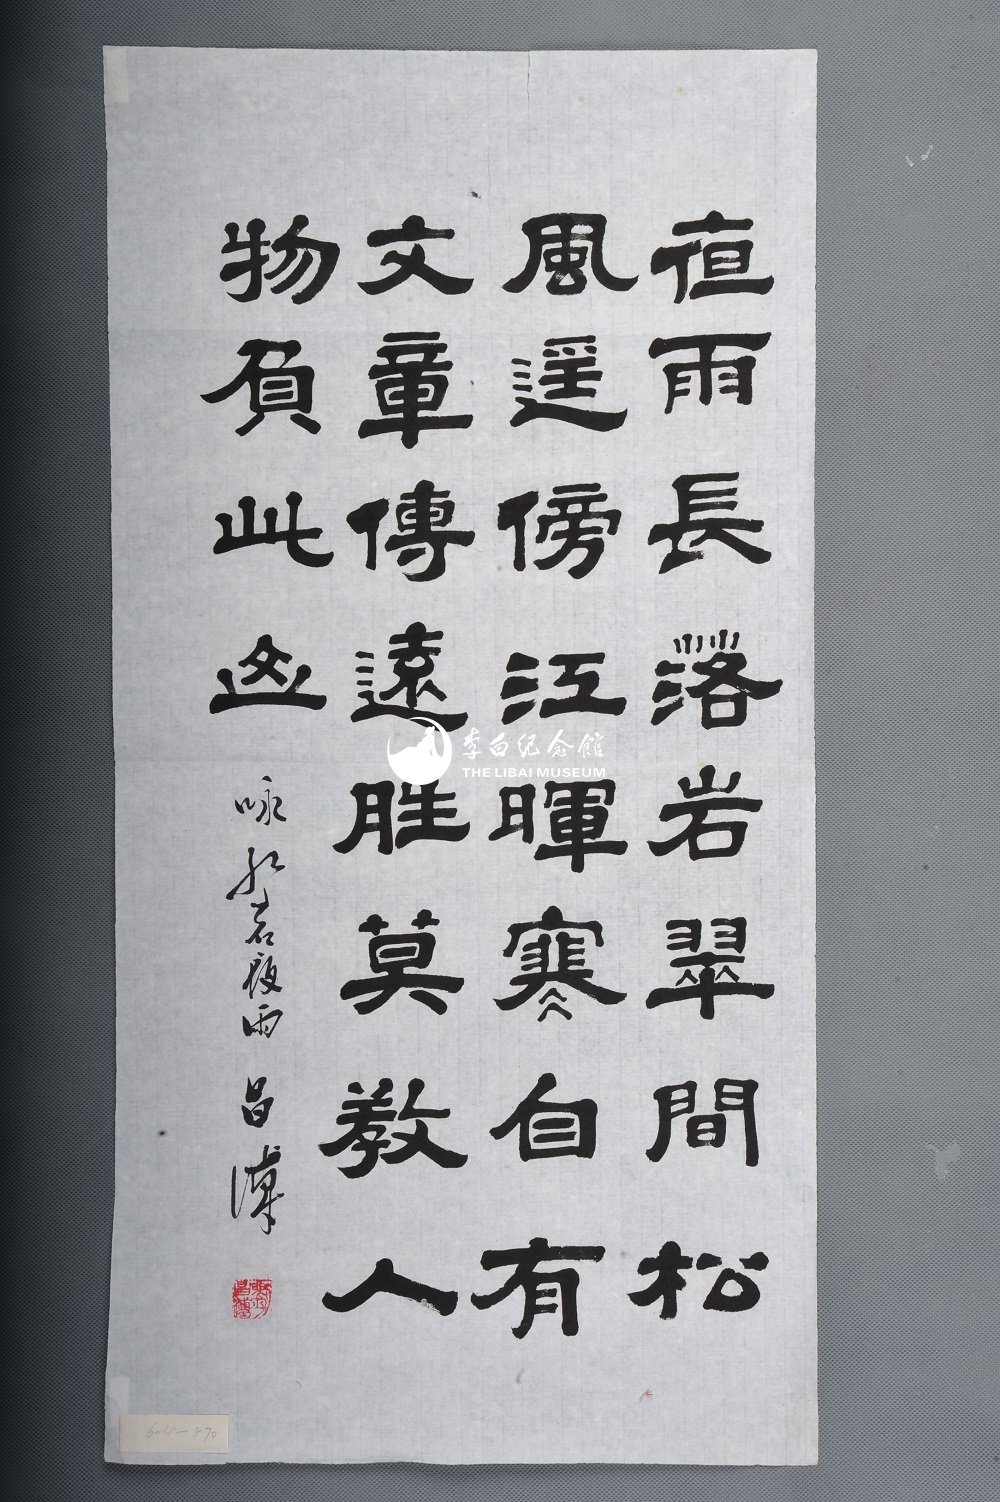 夜雨長落岩翠間松
風遥傍江暉寒自有
文章傳遠勝莫教人
物負此山
咏红岩夜雨 昌
李白纪念館
THE LIBAI MUSEUM